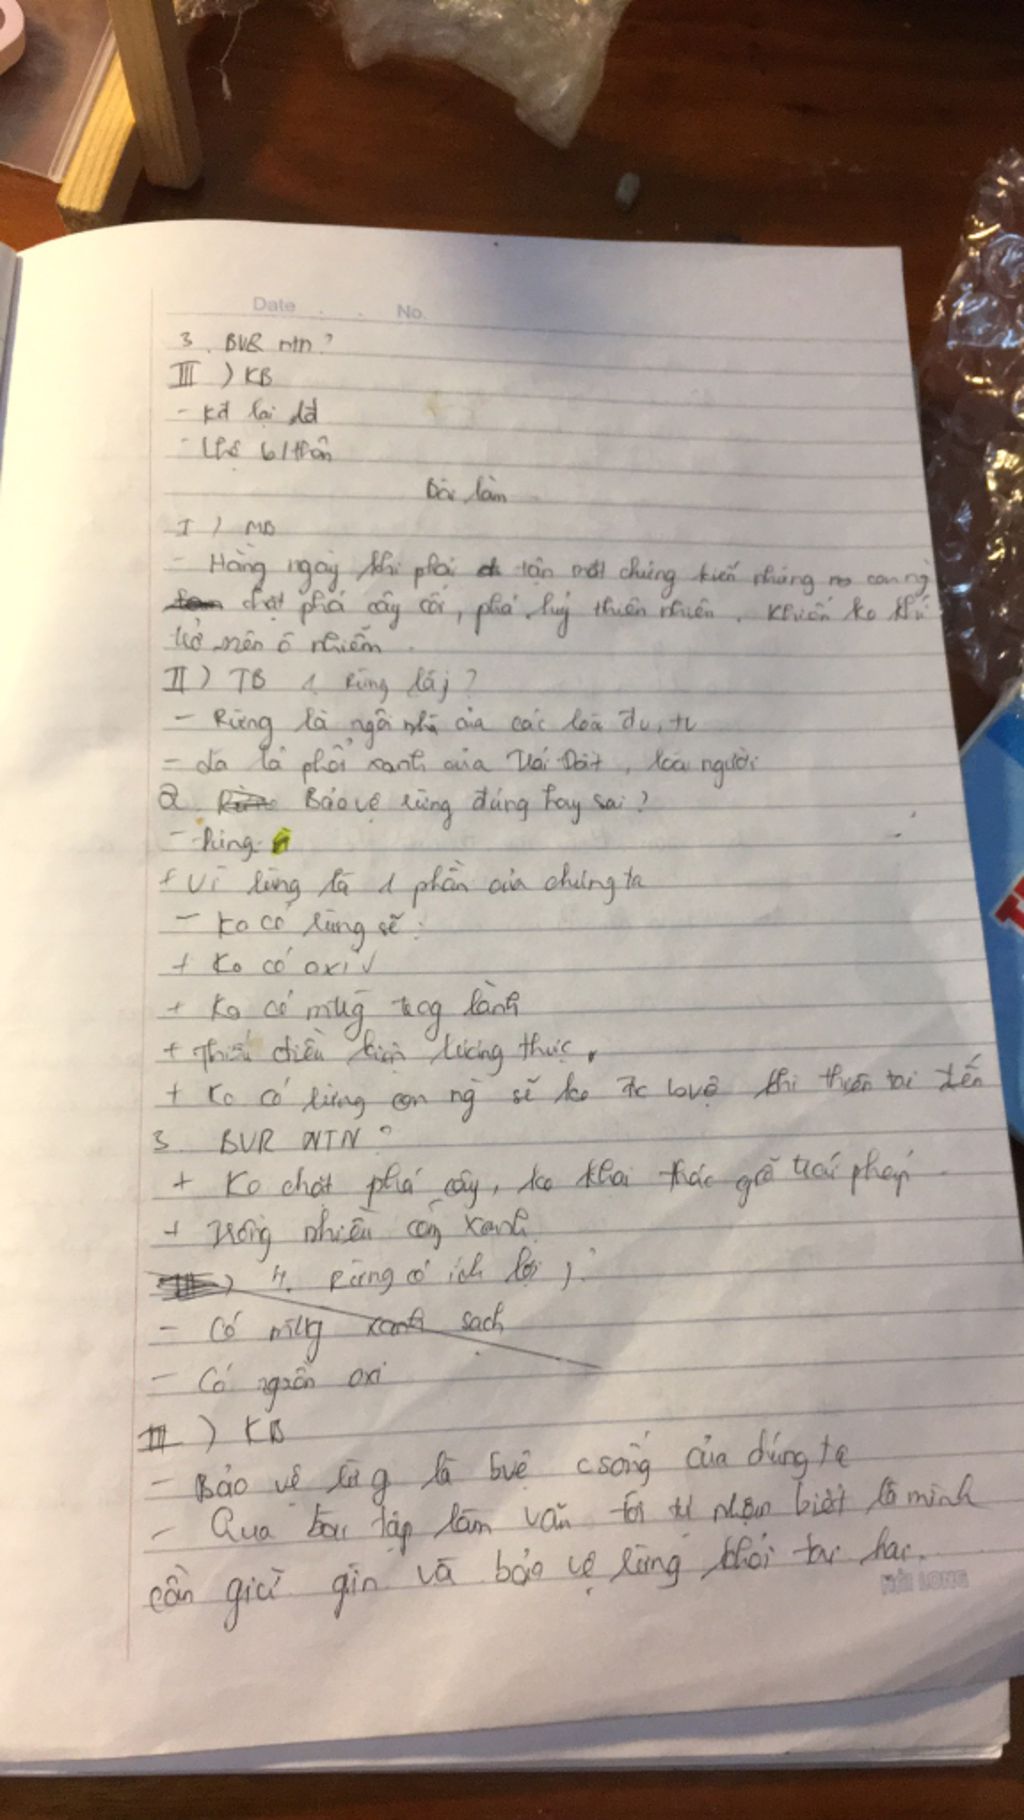 Date . . No.
3. BVR ntn?
III) KB
- Kđ lại
- b/thân
Bài làm
I) MB
- Hằng ngày khi phải tân mắt chứng kiến những con ng
chặt phá cây cối, phá huỷ thiên nhiên. Khiến ko khí
trở nên ô nhiễm.
II) TB 1. Rừng là j?
- Rừng là ngôi nhà của các loà đv, tv
- là lá phổi xanh của Trái Đất, loài người
2. Bảo vệ rừng đúng hay sai?
- Đúng
+ Vì rừng là 1 phần của chúng ta
- Ko có rừng sẽ:
+ Ko có oxi
+ Ko có mtrg trog lành
+ Thiếu điều kiện lương thực
+ Ko có rừng con ng sẽ ko đc bvệ khi thiên tai đến
3. BVR NTN?
+ Ko chặt phá cây, ko khai thác gỗ trái phép
+ Trồng nhiều cây xanh
4. Rừng có ích lợi j?
- Có mtrg xanh sạch
- Có nguồn oxi
III) KB
- Bảo vệ là bvệ csống của chúng ta
- Qua bài tập làm văn tôi tự nhận biết là mình
cần giữ gìn và bảo vệ rừng khỏi tác hại.
HẢI LONG